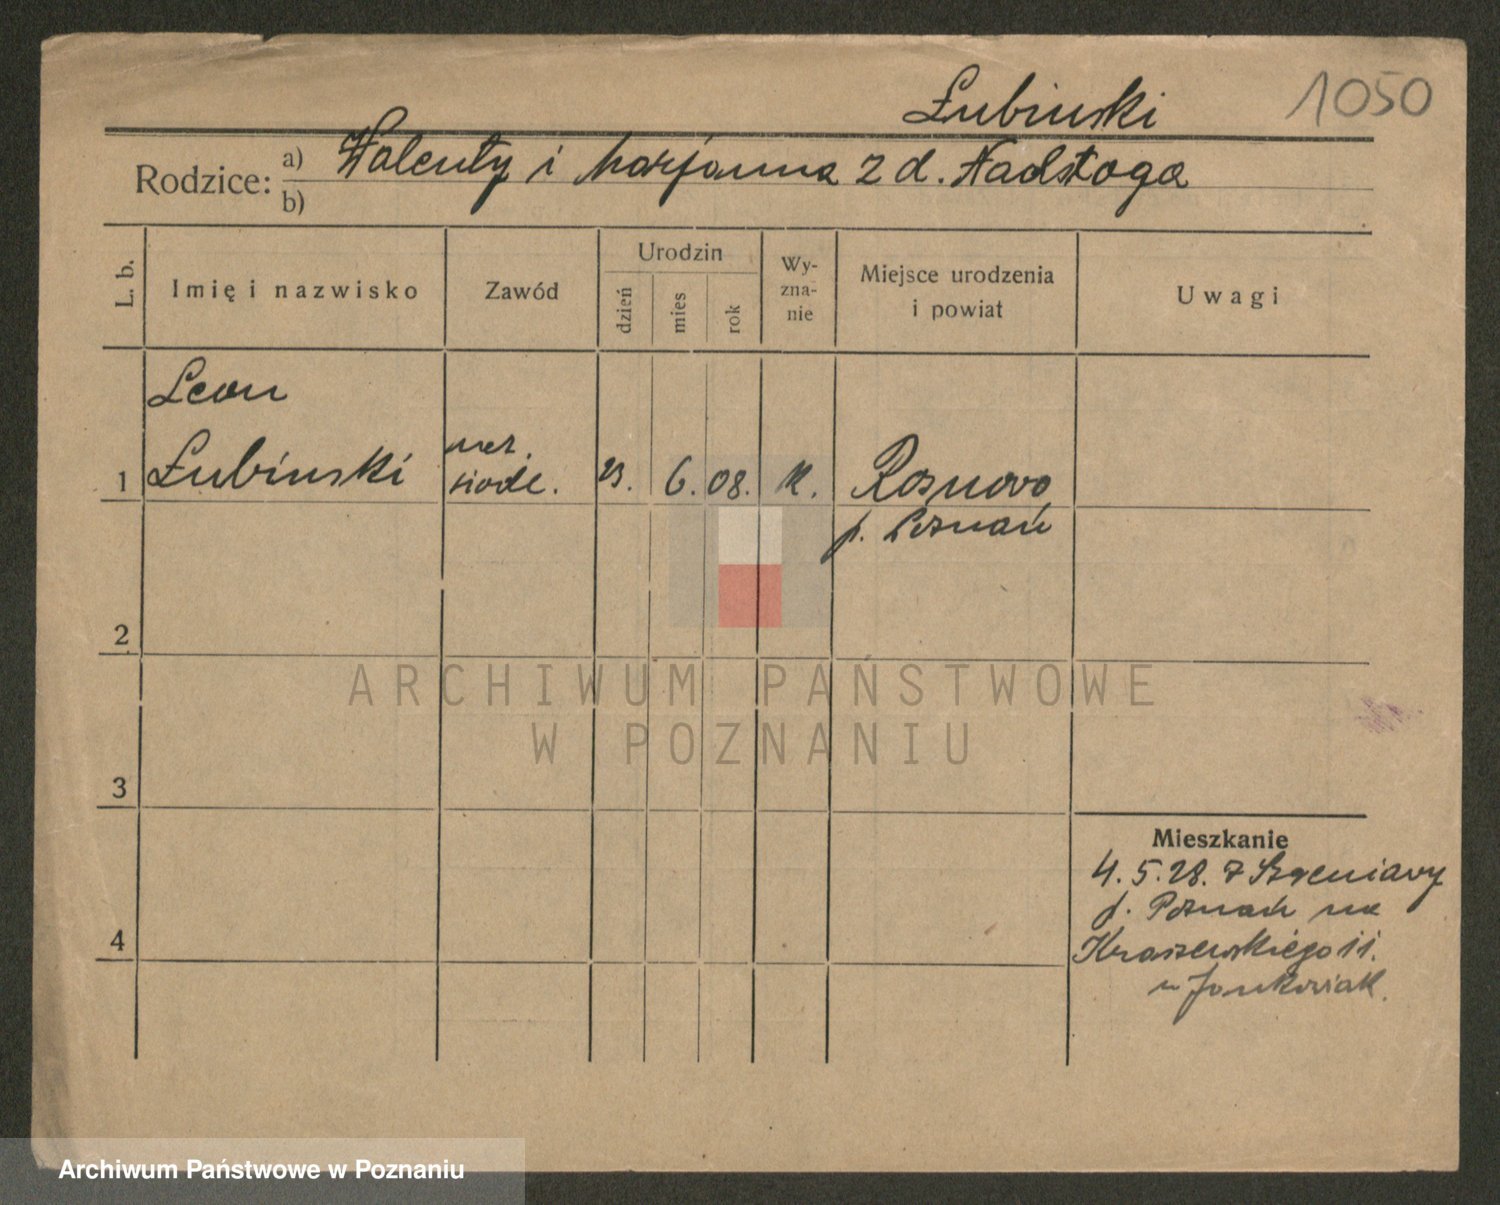 Łubinski
1050
Rodzice:
a) Walenty i Marjanna z d. Nadstoga
b)
L. b.
Imię i nazwisko
Zawód
Urodzin
dzień
mies
rok
Wy-
zna-
nie
Miejsce urodzenia
i powiat
Uwagi
Leon
1 Łubinski
ucz.
siodl.
23. 6. 08. k. Rosnowo
p. Poznań
2
ARCHIWUM PAŃSTWOWE
W POZNANIU
3
Mieszkanie
4. 5. 28. z
p. Poznań na
4
Kraszewskiego 11.
u Jankowiak.
Archiwum Państwowe w Poznaniu